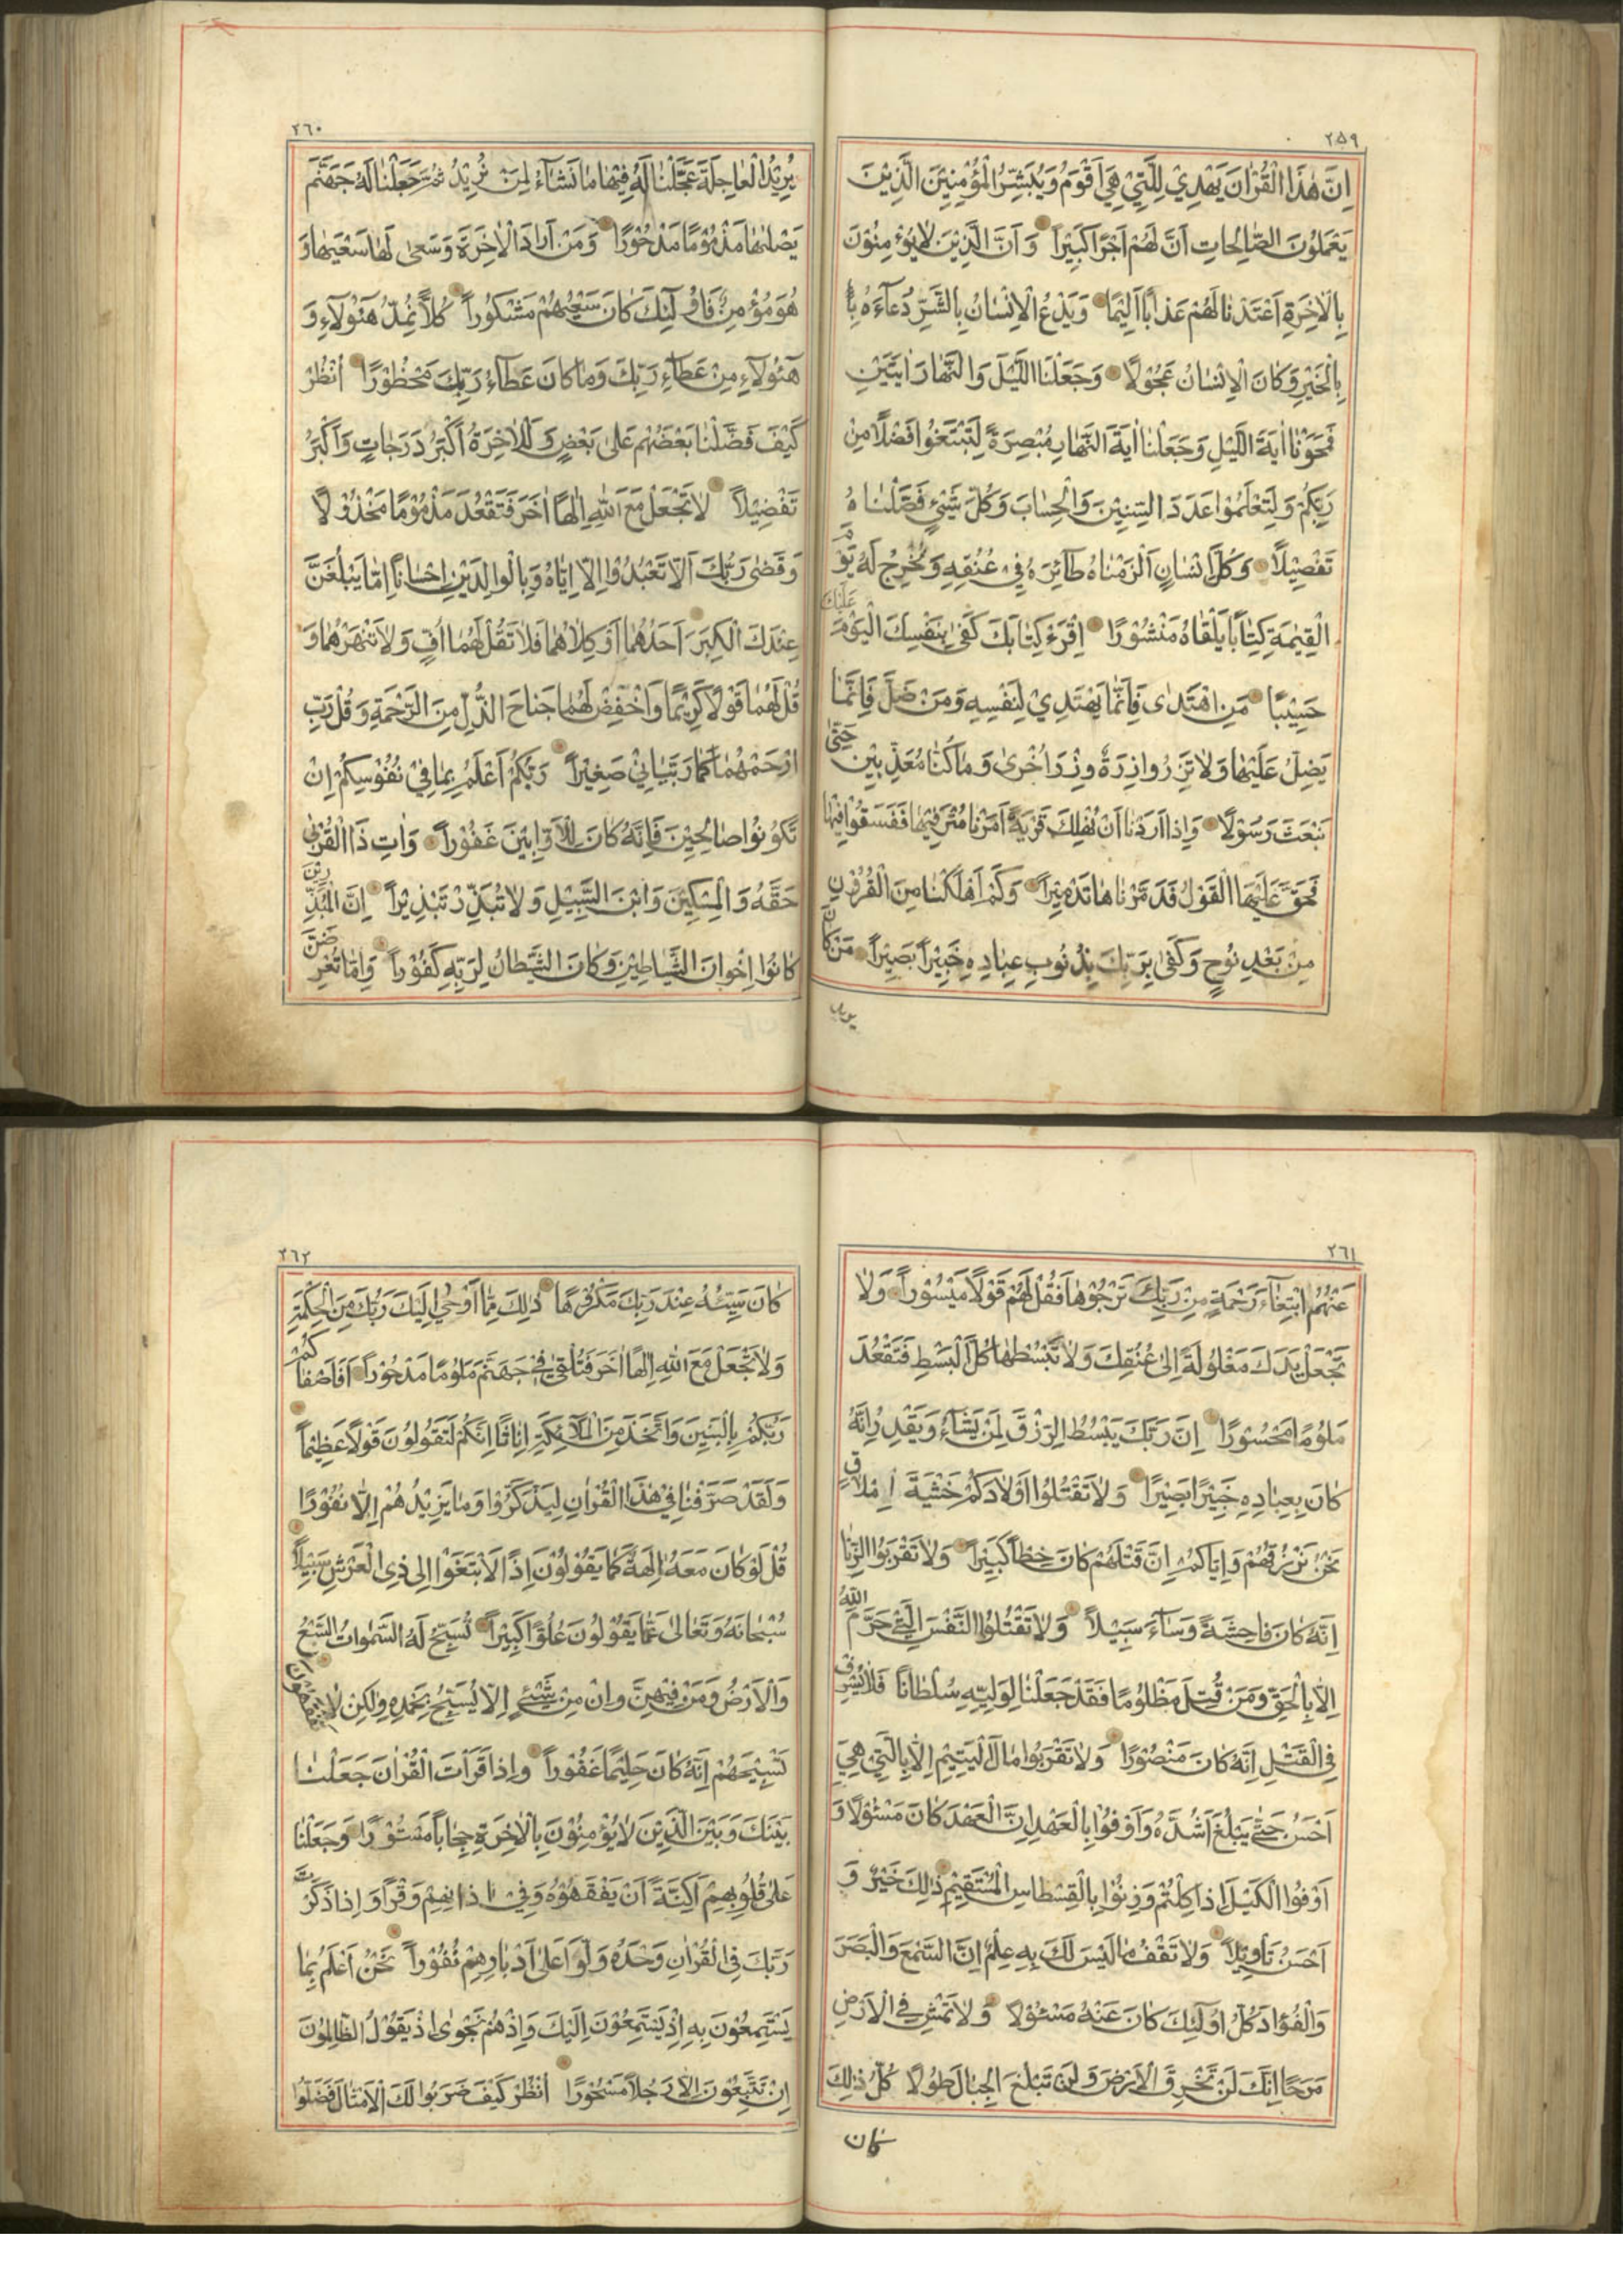 ٢٥٩
اِنَّ هٰذَا الْقُرْاٰنَ يَهْدِيْ لِلَّتِيْ هِيَ اَقْوَمُ وَيُبَشِّرُ الْمُؤْمِنِيْنَ الَّذِيْنَ
يَعْمَلُوْنَ الصّٰالِحٰاتِ اَنَّ لَهُمْ اَجْرًا كَبِيْرًا وَ اَنَّ الَّذِيْنَ لٰا يُؤْمِنُوْنَ
بِالْاٰخِرَةِ اَعْتَدْنٰا لَهُمْ عَذٰابًا اَلِيْمًا وَيَدْعُ الْاِنْسٰانُ بِالشَّرِّ دُعٰآءَهُ بِا
بِالْخَيْرِ وَكٰانَ الْاِنْسٰانُ عَجُوْلًا وَجَعَلْنَا اللَّيْلَ وَالنَّهٰارَ اٰيَتَيْنِ
فَمَحَوْنٰا اٰيَةَ اللَّيْلِ وَجَعَلْنٰا اٰيَةَ النَّهٰارِ مُبْصِرَةً لِتَبْتَغُوا فَضْلًا مِنْ
رَبِّكُمْ وَلِتَعْلَمُوا عَدَدَ السِّنِيْنَ وَالْحِسٰابَ وَكُلَّ شَيْئٍ فَصَّلْنٰاهُ
تَفْصِيْلًا وَكُلَّ اِنْسٰانٍ اَلْزَمْنٰاهُ طٰآئِرَهُ فِيْ عُنُقِهِ وَنُخْرِجُ لَهُ يَوْمَ
الْقِيٰمَةِ كِتٰابًا يَلْقٰاهُ مَنْشُوْرًا اِقْرَءْ كِتٰابَكَ كَفٰى بِنَفْسِكَ الْيَوْمَ عَلَيْكَ
حَسِيْبًا مَنِ اهْتَدٰى فَاِنَّمٰا يَهْتَدِيْ لِنَفْسِهِ وَمَنْ ضَلَّ فَاِنَّمٰا
يَضِلُّ عَلَيْهٰا وَلٰا تَزِرُ وٰازِرَةٌ وِزْرَ اُخْرٰى وَمٰا كُنّٰا مُعَذِّبِيْنَ حَتّٰى
نَبْعَثَ رَسُوْلًا وَاِذٰا اَرَدْنٰا اَنْ نُهْلِكَ قَرْيَةً اَمَرْنٰا مُتْرَفِيْهٰا فَفَسَقُوْا فِيْهٰا
فَحَقَّ عَلَيْهَا الْقَوْلُ فَدَمَّرْنٰاهٰا تَدْمِيْرًا وَكَمْ اَهْلَكْنٰا مِنَ الْقُرُوْنِ
مِنْ بَعْدِ نُوْحٍ وَكَفٰى بِرَبِّكَ بِذُنُوْبِ عِبٰادِهِ خَبِيْرًا بَصِيْرًا مَنْ كٰانَ
يريد
٢٦٠
يُرِيْدُ الْعٰاجِلَةَ عَجَّلْنٰا لَهُ فِيْهٰا مٰا نَشٰآءُ لِمَنْ نُرِيْدُ ثُمَّ جَعَلْنٰا لَهُ جَهَنَّمَ
يَصْلٰيهٰا مَذْمُوْمًا مَدْحُوْرًا وَمَنْ اَرٰادَ الْاٰخِرَةَ وَسَعٰى لَهٰا سَعْيَهٰا وَ
هُوَ مُؤْمِنٌ فَاُولٰٓئِكَ كٰانَ سَعْيُهُمْ مَشْكُوْرًا كُلًّا نُمِدُّ هٰٓؤُلٰآءِ وَ
هٰٓؤُلٰآءِ مِنْ عَطٰآءِ رَبِّكَ وَمٰا كٰانَ عَطٰآءُ رَبِّكَ مَحْظُوْرًا اُنْظُرْ
كَيْفَ فَضَّلْنٰا بَعْضَهُمْ عَلٰى بَعْضٍ وَلَلْاٰخِرَةُ اَكْبَرُ دَرَجٰاتٍ وَاَكْبَرُ
تَفْضِيْلًا لٰا تَجْعَلْ مَعَ اللّٰهِ اِلٰهًا اٰخَرَ فَتَقْعُدَ مَذْمُوْمًا مَخْذُوْلًا
وَقَضٰى رَبُّكَ اَلّٰا تَعْبُدُوْا اِلّٰا اِيّٰاهُ وَبِالْوٰالِدَيْنِ اِحْسٰانًا اِمّٰا يَبْلُغَنَّ
عِنْدَكَ الْكِبَرَ اَحَدُهُمٰا اَوْ كِلٰاهُمٰا فَلٰا تَقُلْ لَهُمٰا اُفٍّ وَلٰا تَنْهَرْهُمٰا وَ
قُلْ لَهُمٰا قَوْلًا كَرِيْمًا وَاخْفِضْ لَهُمٰا جَنٰاحَ الذُّلِّ مِنَ الرَّحْمَةِ وَقُلْ رَبِّ
ارْحَمْهُمٰا كَمٰا رَبَّيٰانِيْ صَغِيْرًا رَبُّكُمْ اَعْلَمُ بِمٰا فِيْ نُفُوْسِكُمْ اِنْ
تَكُوْنُوْا صٰالِحِيْنَ فَاِنَّهُ كٰانَ لِلْاَوّٰابِيْنَ غَفُوْرًا وَاٰتِ ذَا الْقُرْبٰى
حَقَّهُ وَالْمِسْكِيْنَ وَابْنَ السَّبِيْلِ وَلٰا تُبَذِّرْ تَبْذِيْرًا اِنَّ الْمُبَذِّرِيْنَ
كٰانُوْا اِخْوٰانَ الشَّيٰاطِيْنِ وَكٰانَ الشَّيْطٰانُ لِرَبِّهِ كَفُوْرًا وَاِمّٰا تُعْرِضَنَّ
٢٦١
عَنْهُمُ ابْتِغٰآءَ رَحْمَةٍ مِنْ رَبِّكَ تَرْجُوْهٰا فَقُلْ لَهُمْ قَوْلًا مَيْسُوْرًا وَلٰا
تَجْعَلْ يَدَكَ مَغْلُوْلَةً اِلٰى عُنُقِكَ وَلٰا تَبْسُطْهٰا كُلَّ الْبَسْطِ فَتَقْعُدَ
مَلُوْمًا مَحْسُوْرًا اِنَّ رَبَّكَ يَبْسُطُ الرِّزْقَ لِمَنْ يَشٰآءُ وَيَقْدِرُ اِنَّهُ
كٰانَ بِعِبٰادِهِ خَبِيْرًا بَصِيْرًا وَلٰا تَقْتُلُوْا اَوْلٰادَكُمْ خَشْيَةَ اِمْلٰاقٍ
نَحْنُ نَرْزُقُهُمْ وَاِيّٰاكُمْ اِنَّ قَتْلَهُمْ كٰانَ خِطْأً كَبِيْرًا وَلٰا تَقْرَبُوا الزِّنٰا
اِنَّهُ كٰانَ فٰاحِشَةً وَسٰآءَ سَبِيْلًا وَلٰا تَقْتُلُوا النَّفْسَ الَّتِيْ حَرَّمَ اللّٰهُ
اِلّٰا بِالْحَقِّ وَمَنْ قُتِلَ مَظْلُوْمًا فَقَدْ جَعَلْنٰا لِوَلِيِّهِ سُلْطٰانًا فَلٰا يُسْرِفْ
فِي الْقَتْلِ اِنَّهُ كٰانَ مَنْصُوْرًا وَلٰا تَقْرَبُوْا مٰالَ الْيَتِيْمِ اِلّٰا بِالَّتِيْ هِيَ
اَحْسَنُ حَتّٰى يَبْلُغَ اَشُدَّهُ وَاَوْفُوْا بِالْعَهْدِ اِنَّ الْعَهْدَ كٰانَ مَسْئُوْلًا وَ
اَوْفُوا الْكَيْلَ اِذٰا كِلْتُمْ وَزِنُوْا بِالْقِسْطٰاسِ الْمُسْتَقِيْمِ ذٰلِكَ خَيْرٌ وَ
اَحْسَنُ تَاْوِيْلًا وَلٰا تَقْفُ مٰا لَيْسَ لَكَ بِهِ عِلْمٌ اِنَّ السَّمْعَ وَالْبَصَرَ
وَالْفُؤٰادَ كُلُّ اُولٰٓئِكَ كٰانَ عَنْهُ مَسْئُوْلًا وَلٰا تَمْشِ فِي الْاَرْضِ
مَرَحًا اِنَّكَ لَنْ تَخْرِقَ الْاَرْضَ وَلَنْ تَبْلُغَ الْجِبٰالَ طُوْلًا كُلُّ ذٰلِكَ
كان
٢٦٢
كٰانَ سَيِّئُهُ عِنْدَ رَبِّكَ مَكْرُوْهًا ذٰلِكَ مِمّٰا اَوْحٰى اِلَيْكَ رَبُّكَ مِنَ الْحِكْمَةِ
وَلٰا تَجْعَلْ مَعَ اللّٰهِ اِلٰهًا اٰخَرَ فَتُلْقٰى فِيْ جَهَنَّمَ مَلُوْمًا مَدْحُوْرًا اَفَاَصْفٰاكُمْ
رَبُّكُمْ بِالْبَنِيْنَ وَاتَّخَذَ مِنَ الْمَلٰآئِكَةِ اِنٰاثًا اِنَّكُمْ لَتَقُوْلُوْنَ قَوْلًا عَظِيْمًا
وَلَقَدْ صَرَّفْنٰا فِيْ هٰذَا الْقُرْاٰنِ لِيَذَّكَّرُوْا وَمٰا يَزِيْدُهُمْ اِلّٰا نُفُوْرًا
قُلْ لَوْ كٰانَ مَعَهُ اٰلِهَةٌ كَمٰا يَقُوْلُوْنَ اِذًا لَابْتَغَوْا اِلٰى ذِي الْعَرْشِ سَبِيْلًا
سُبْحٰانَهُ وَتَعٰالٰى عَمّٰا يَقُوْلُوْنَ عُلُوًّا كَبِيْرًا تُسَبِّحُ لَهُ السَّمٰوٰاتُ السَّبْعُ
وَالْاَرْضُ وَمَنْ فِيْهِنَّ وَاِنْ مِنْ شَيْئٍ اِلّٰا يُسَبِّحُ بِحَمْدِهِ وَلٰكِنْ لٰا تَفْقَهُوْنَ
تَسْبِيْحَهُمْ اِنَّهُ كٰانَ حَلِيْمًا غَفُوْرًا وَاِذٰا قَرَاْتَ الْقُرْاٰنَ جَعَلْنٰا
بَيْنَكَ وَبَيْنَ الَّذِيْنَ لٰا يُؤْمِنُوْنَ بِالْاٰخِرَةِ حِجٰابًا مَسْتُوْرًا وَجَعَلْنٰا
عَلٰى قُلُوْبِهِمْ اَكِنَّةً اَنْ يَفْقَهُوْهُ وَفِيْ اٰذٰانِهِمْ وَقْرًا وَاِذٰا ذَكَرْتَ
رَبَّكَ فِي الْقُرْاٰنِ وَحْدَهُ وَلَّوْا عَلٰى اَدْبٰارِهِمْ نُفُوْرًا نَحْنُ اَعْلَمُ بِمٰا
يَسْتَمِعُوْنَ بِهِ اِذْ يَسْتَمِعُوْنَ اِلَيْكَ وَاِذْ هُمْ نَجْوٰى اِذْ يَقُوْلُ الظّٰالِمُوْنَ
اِنْ تَتَّبِعُوْنَ اِلّٰا رَجُلًا مَسْحُوْرًا اُنْظُرْ كَيْفَ ضَرَبُوْا لَكَ الْاَمْثٰالَ فَضَلُّوْا